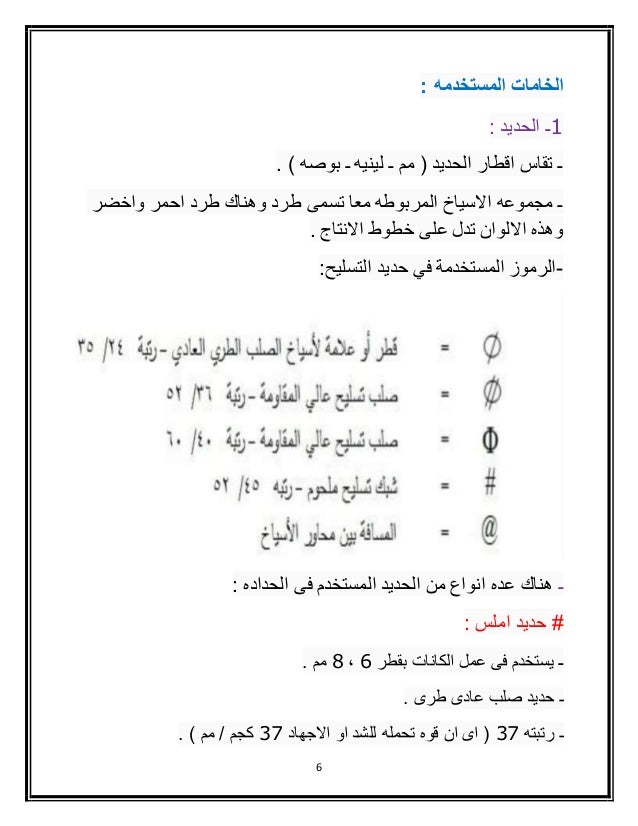 الخامات المستخدمه :
1ـ الحديد :
ـ تقاس اقطار الحديد ( مم ـ لينيه ـ بوصه ) .
ـ مجموعه الاسياخ المربوطه معا تسمى طرد وهناك طرد احمر واخضر
وهذه الالوان تدل على خطوط الانتاج .
-الرموز المستخدمة في حديد التسليح:
∅ = قطر أو علامة لأسياخ الصلب الطري العادي - رتبة ٢٤/ ٣٥
= صلب تسليح عالي المقاومة - رتبة ٣٦/ ٥٢
Φ = صلب تسليح عالي المقاومة - رتبة ٤٠/ ٦٠
# = شبك تسليح ملحوم - رتبه ٤٥/ ٥٢
@ = المسافة بين محاور الأسياخ
ـ هناك عده انواع من الحديد المستخدم فى الحداده :
# حديد املس :
ـ يستخدم فى عمل الكانات بقطر 6 ، 8 مم .
ـ حديد صلب عادى طرى .
ـ رتبته 37 ( اى ان قوه تحمله للشد او الاجهاد 37 كجم / مم ) .
6